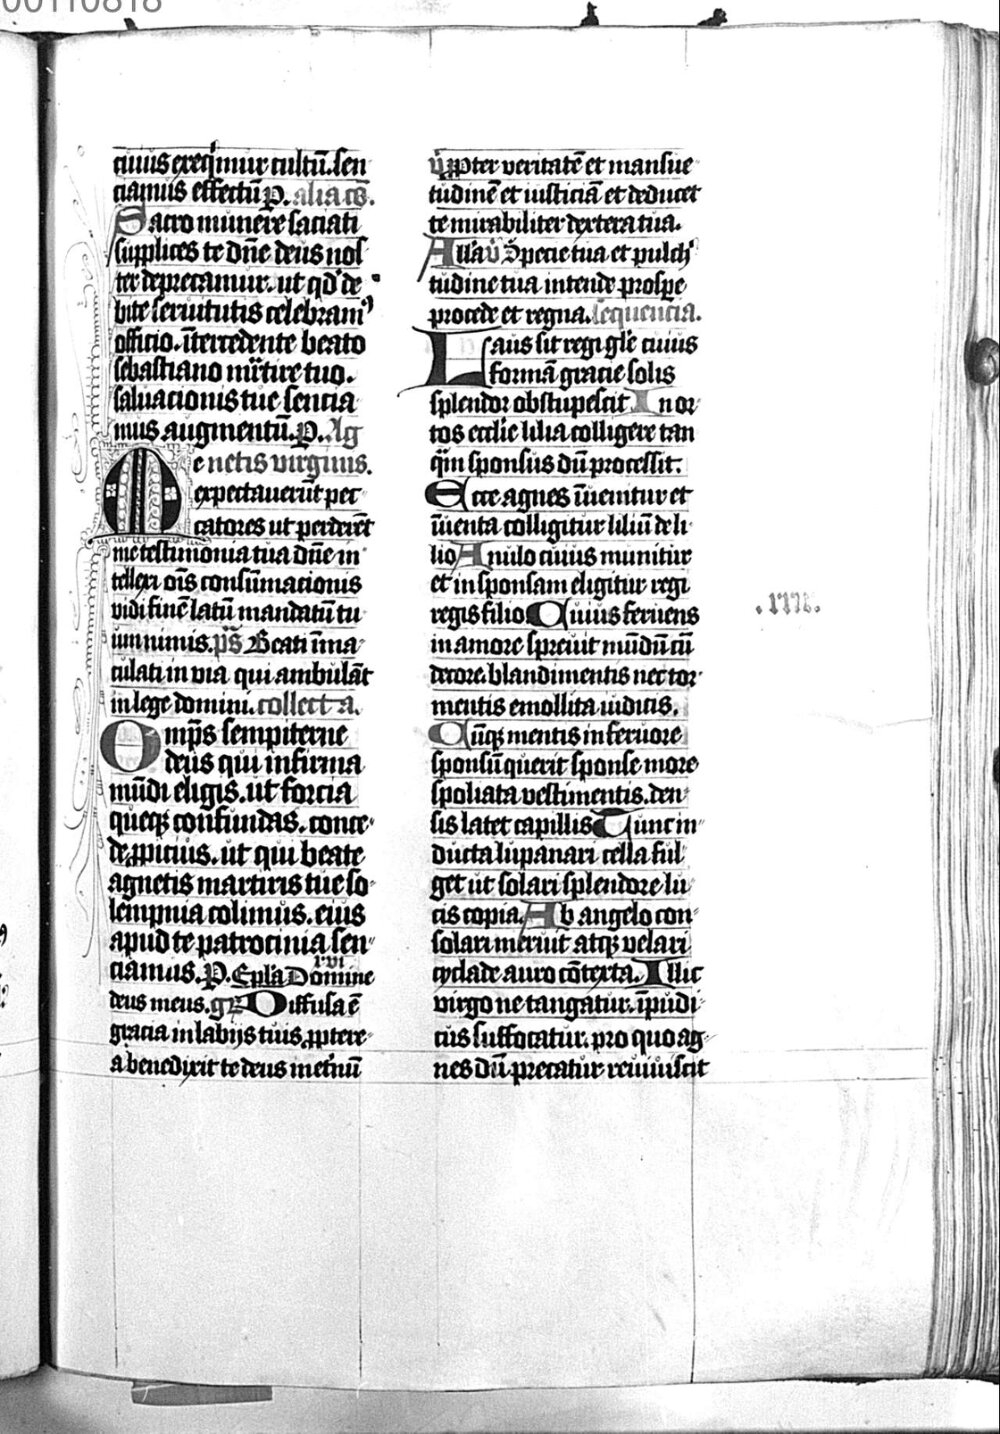 00110818
cuius exeq'mur cultū. sen
ciamus effectū P. alia cō.
Sacro munere saciati
supplices te dn̄e deus nos
ter deprecamur. ut qd' de
bite seruitutis celebram᾿
officio. ītercedente beato
sebastiano mr̄tire tuo.
saluacionis tue sencia
mus augmentū. P. Ag
netis virginis.
Me expectauerūt pec
catores ut perderēt
me testimonia tua dn̄e in
tellexi ois consūmacionis
vidi finē latū mandatū tu
um nimis. ps̄ Beati īma
culati in via qui ambulāt
in lege domini. collecta.
Omp̄s sempiterne
deus qui infirma
mūdi eligis. ut forcia
queqꝫ confundas. conce
de ꝓpicius. ut qui beate
agnetis martiris tue so
lempnia colimus. eius
apud te patrocinia sen
ciamus. P. Epl̄a Domine
xvi
deus meus. gr̄ Diffusa ē
gracia in labijs tuis ꝓptere
a benedixit te deus in et'nū
v̄ ꝓpter veritatē et mansue
tudinē et iusticiā et deducet
te mirabiliter dextera tua.
Alla v̄ Specie tua et pulch'
tudine tua intende prospe
procede et regna. sequencia.
Laus sit regi gl̄e cuius
formā gracie solis
splendor obstupescit In or
tos ecclie lilia colligere tan
q̄m sponsus dū processit.
Ecce agnes īuenitur et
īuenta colligitur liliū de li
lio Anulo cuius munitur
et in sponsam eligitur regi
regis filio Cuius feruens
in amore spreuit mūdū cū
decore. blandimentis nec tor
mentis emollita iudicis.
Cūqꝫ mentis in feruore
sponsū querit sponse more
spoliata vestimentis. den
sis latet capillis Tunc in
ducta lupanari cella ful
get ut solari splendore lu
cis copia. Ab angelo con
solari meruit atqꝫ velari
cyclade auro cōtexta. Illic
virgo ne tangatur. īpudi
cus suffocatur. pro quo ag
nes dū precatur reuiuiscit